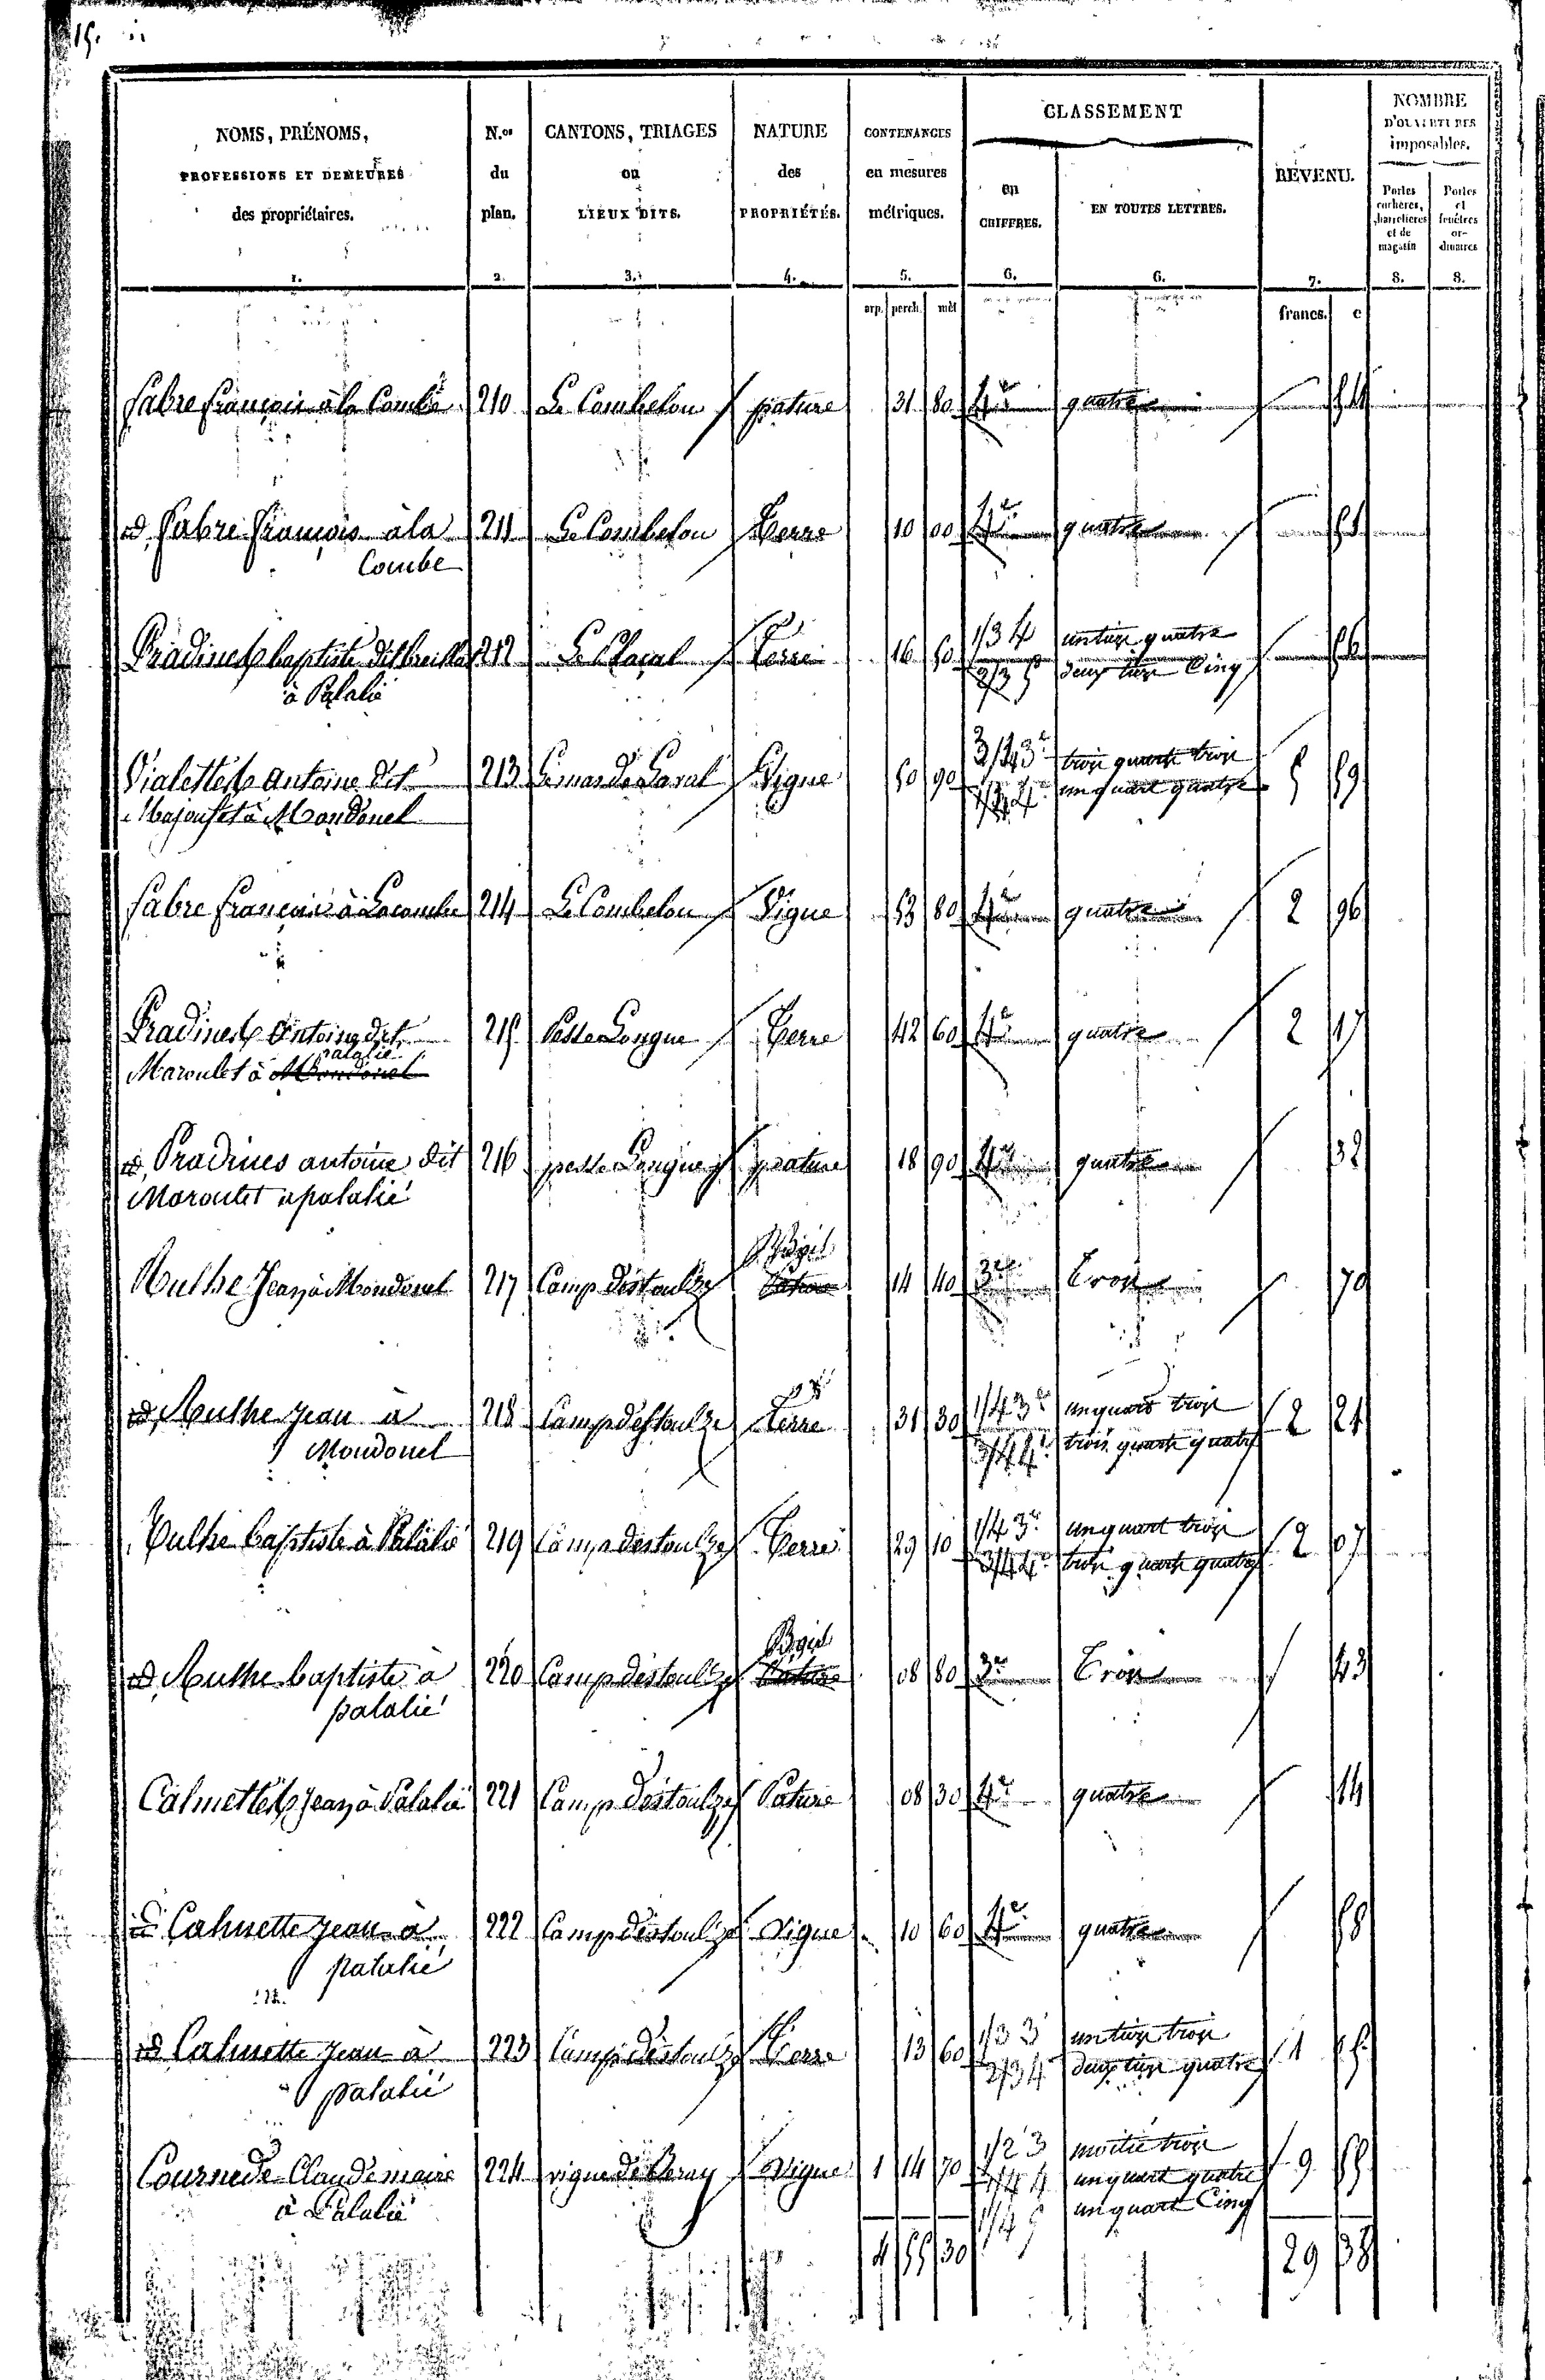 15.
NOMS, PRÉNOMS,
PROFESSIONS ET DEMEURES
des propriétaires.
1.
N.os
du
plan.
2.
CANTONS, TRIAGES
ou
LIEUX DITS.
3.
NATURE
des
PROPRIÉTÉS.
4.
CONTENANCES
en mesures
métriques.
5.
CLASSEMENT
en
CHIFFRES.
6.
EN TOUTES LETTRES.
6.
REVENU.
7.
NOMBRE
D'OUVERTURES
imposables.
Portes
cochères,
charretières
et de
magasin
8.
Portes
et
fenêtres
or-
dinaires
8.
arp. perch. mèt francs. c
Fabre François à la Combe 210 Le Combelou pature 31 80 4e quatre 54
id, Fabre François à la 211 Le Combelou Terre 10 00 4e quatre 51
Combe
Pradines baptiste dit 212 Terre 16 50 1/3 4 un tiers quatre
à Palalié 2/3 5 deux tiers Cinq
Vialettes Antoine dit 213 Vigne 50 90 3/4 3e trois quarts trois 5 59
à Mondouel 1/4 4e un quart quatre
Fabre François à Lacombe 214 Le Combelou Vigne 53 80 4e quatre 2 96
Pradines Antoine dit 215 Pesse Longue Terre 42 60 4e quatre 2 17
palalié
Maroulet à Mondouel
id, Pradines antoine dit 216 pesse Longue pature 18 90 4e quatre 32
Maroulet à palalié
Jean à Mondouel 217 Camp destoulze Pature 14 40 3e Trois 70
id, Jean à 218 Camp destoulze Terre 31 30 1/4 3e un quart trois 2 21
Mondouel 3/4 4e trois quarts quatre
baptiste à Palalié 219 Camp destoulze Terre 29 10 1/4 3e un quart trois 2 07
3/4 4e trois quarts quatre
id, baptiste à 220 Camp destoulze Pature 08 80 3e Trois 43
palalié
Calmettes Jean à Palalié 221 Camp destoulze Pature 08 30 4e quatre 14
id Calmette Jean à 222 Camp destoulze Vigne 10 60 4e quatre 58
palalié
id Calmette Jean à 223 Camp destoulze Terre 13 60 1/3 3 un tiers trois 1 55
palalié 2/3 4 deux tiers quatre
Cournede Claude maire 224 vigne de Vigne 1 14 70 1/2 3 moitié trois 9 55
à Palalié 1/4 4 un quart quatre
1/4 5 un quart Cinq
4 55 30 29 38